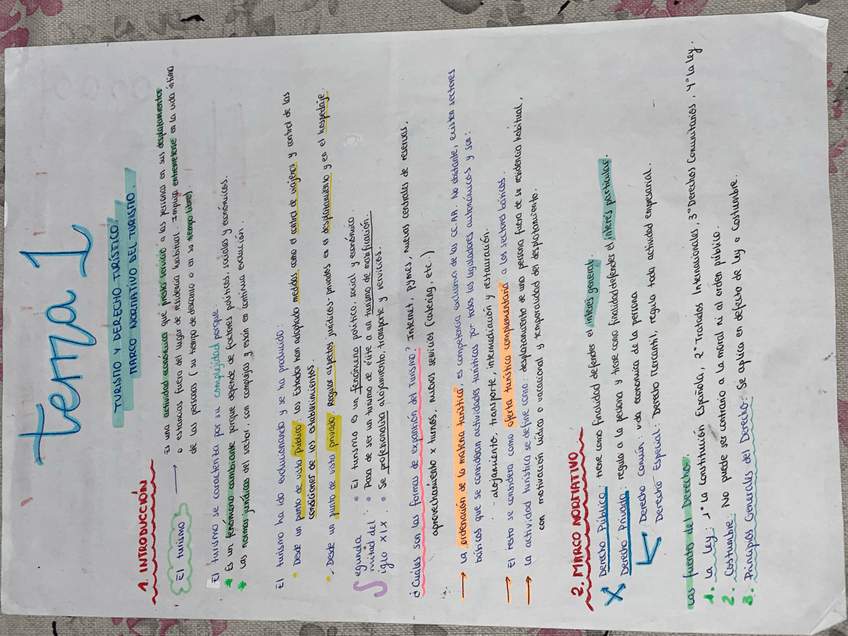 Tema 1
TURISMO Y DERECHO TURÍSTICO.
MARCO NORMATIVO DEL TURISMO.
1. INTRODUCCIÓN
El turismo → Es una actividad económica que presta servicio a las personas en sus desplazamientos
o estancias fuera del lugar de residencia habitual. Impulsa entrometerse en la vida íntima
de las personas, su tiempo de descanso o en su tiempo libre.
El turismo se caracteriza por su complejidad porque
* Es un fenómeno cambiante porque depende de factores políticos, sociales y económicos.
* Las normas jurídicas del sector, son complejas y están en continua evolución.
El turismo ha ido evolucionando y se ha producido:
• Desde un punto de vista público: los Estados han adoptado medidas como el control de viajeros y control de las
condiciones de los establecimientos.
• Desde un punto de vista privado: Regular aspectos jurídicos-privados en el desplazamiento y en el hospedaje.
Segunda • El turismo es un fenómeno político, social y económico
mitad del • Pasa de ser un turismo de élite a un turismo de masificación.
siglo XIX • Se profesionaliza alojamiento, transporte y servicios.
¿Cuáles son las formas de expansión del Turismo? Internet, pymes, nuevas centrales de reservas,
aprovechamiento x turnos, nuevos servicios (catering, etc.)
→ La ordenación de la materia turística es competencia exclusiva de las CC.AA. No obstante, existen sectores
básicos que se consideran actividades turísticas por todos los legisladores autonómicos y son:
- alojamiento, transporte, intermediación y restauración.
→ El resto se considera como oferta turística complementaria a los sectores básicos.
→ La actividad turística se define como: desplazamiento de una persona fuera de su residencia habitual,
con motivación lúdica o vacacional y temporalidad del desplazamiento.
2. MARCO NORMATIVO
Derecho Público: tiene como finalidad defender el interés general.
Derecho Privado: regula a la persona y tiene como finalidad defender el interés particular.
Derecho Común: vida económica de la persona
Derecho Especial: Derecho Mercantil regula toda actividad empresarial.
Las fuentes del Derecho:
1. La Ley: 1º La Constitución Española, 2º Tratados Internacionales, 3º Derechos Comunitarios, 4º La ley.
2. Costumbre: No puede ser contrario a la moral ni al orden público.
3. Principios Generales del Derecho: Se aplica en defecto de Ley o Costumbre.